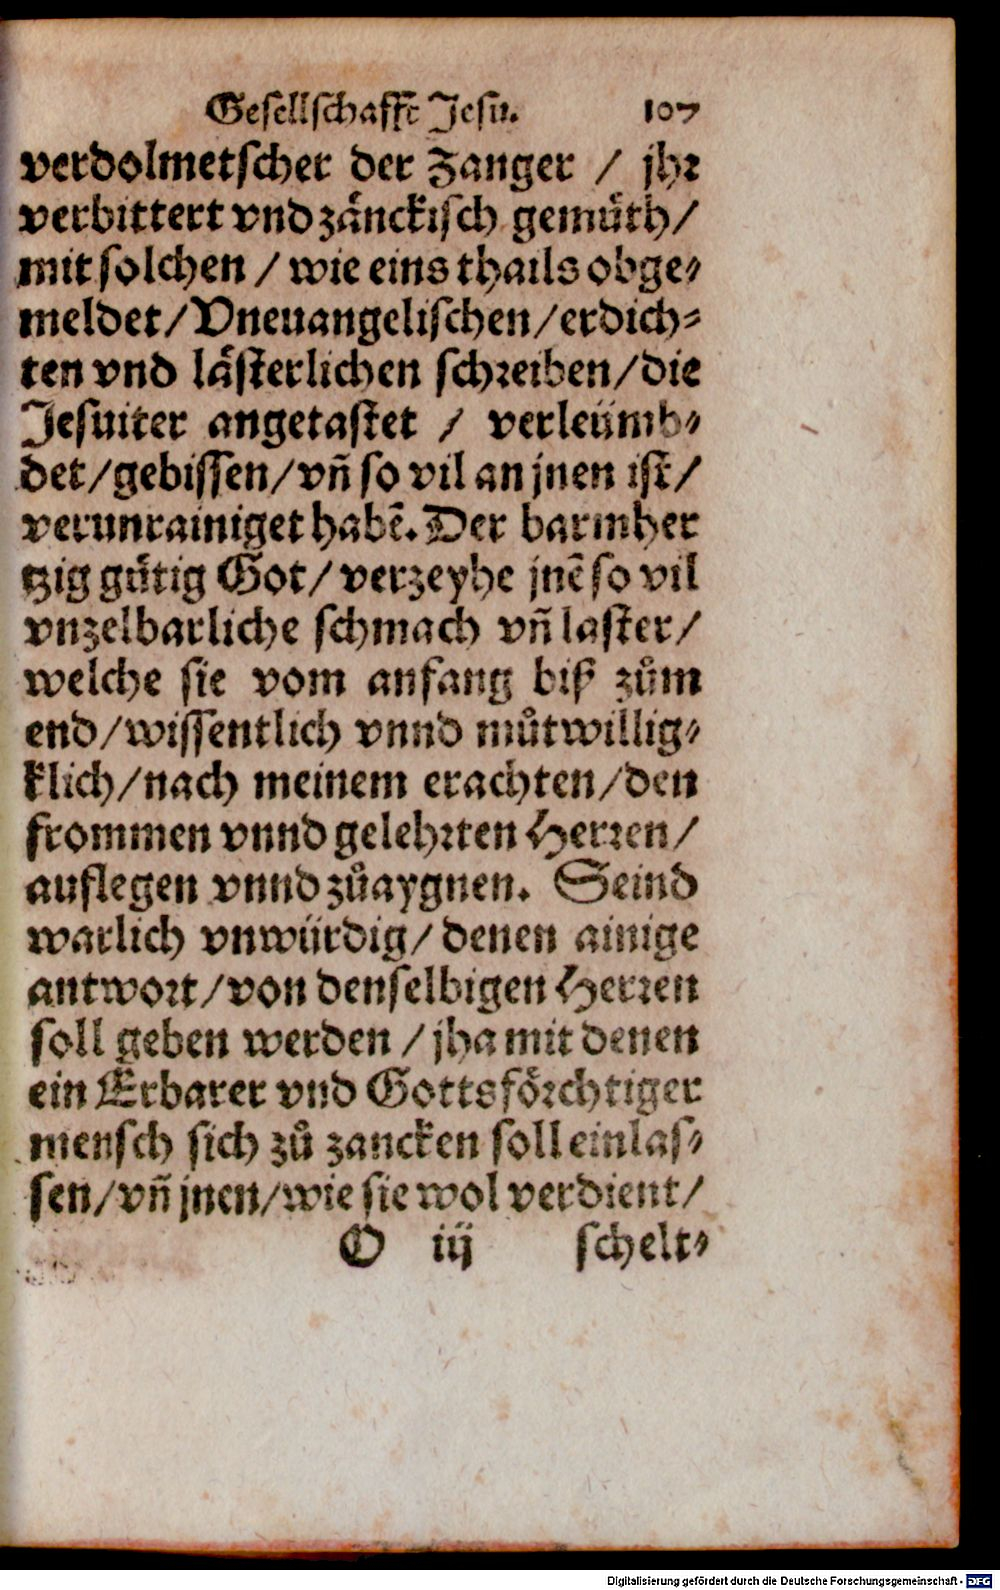 Gesellschafft Jesu. 107
verdolmetscher der Zanger / jhr
verbittert vnd zäncķisch gemüth/
mit solchen / wie eins thails obge-
meldet/Vneuangelischen/erdich-
ten vnd lästerlichen schreiben/die
Jesuiter angetastet / verleümb-
det/gebissen/vñ so vil an jnen ist/
verunrainiget habē. Der barmher
tzig gütig Got/verzeyhe jnē so vil
vnzelbarliche schmach vñ laster/
welche sie vom anfang biß zům
end/wissentlich vnnd můtwillig-
klich/nach meinem erachten/den
frommen vnnd gelehrten Herren/
auflegen vnnd zůaygnen. Seind
warlich vnwürdig/denen ainige
antwort/von denselbigen Herren
soll geben werden / jha mit denen
ein Erbarer vnd Gottsförchtiger
mensch sich zů zancken soll einlas-
sen/vñ jnen/wie sie wol verdient/
O iij schelt-
Digitalisierung gefördert durch die Deutsche Forschungsgemeinschaft - DFG